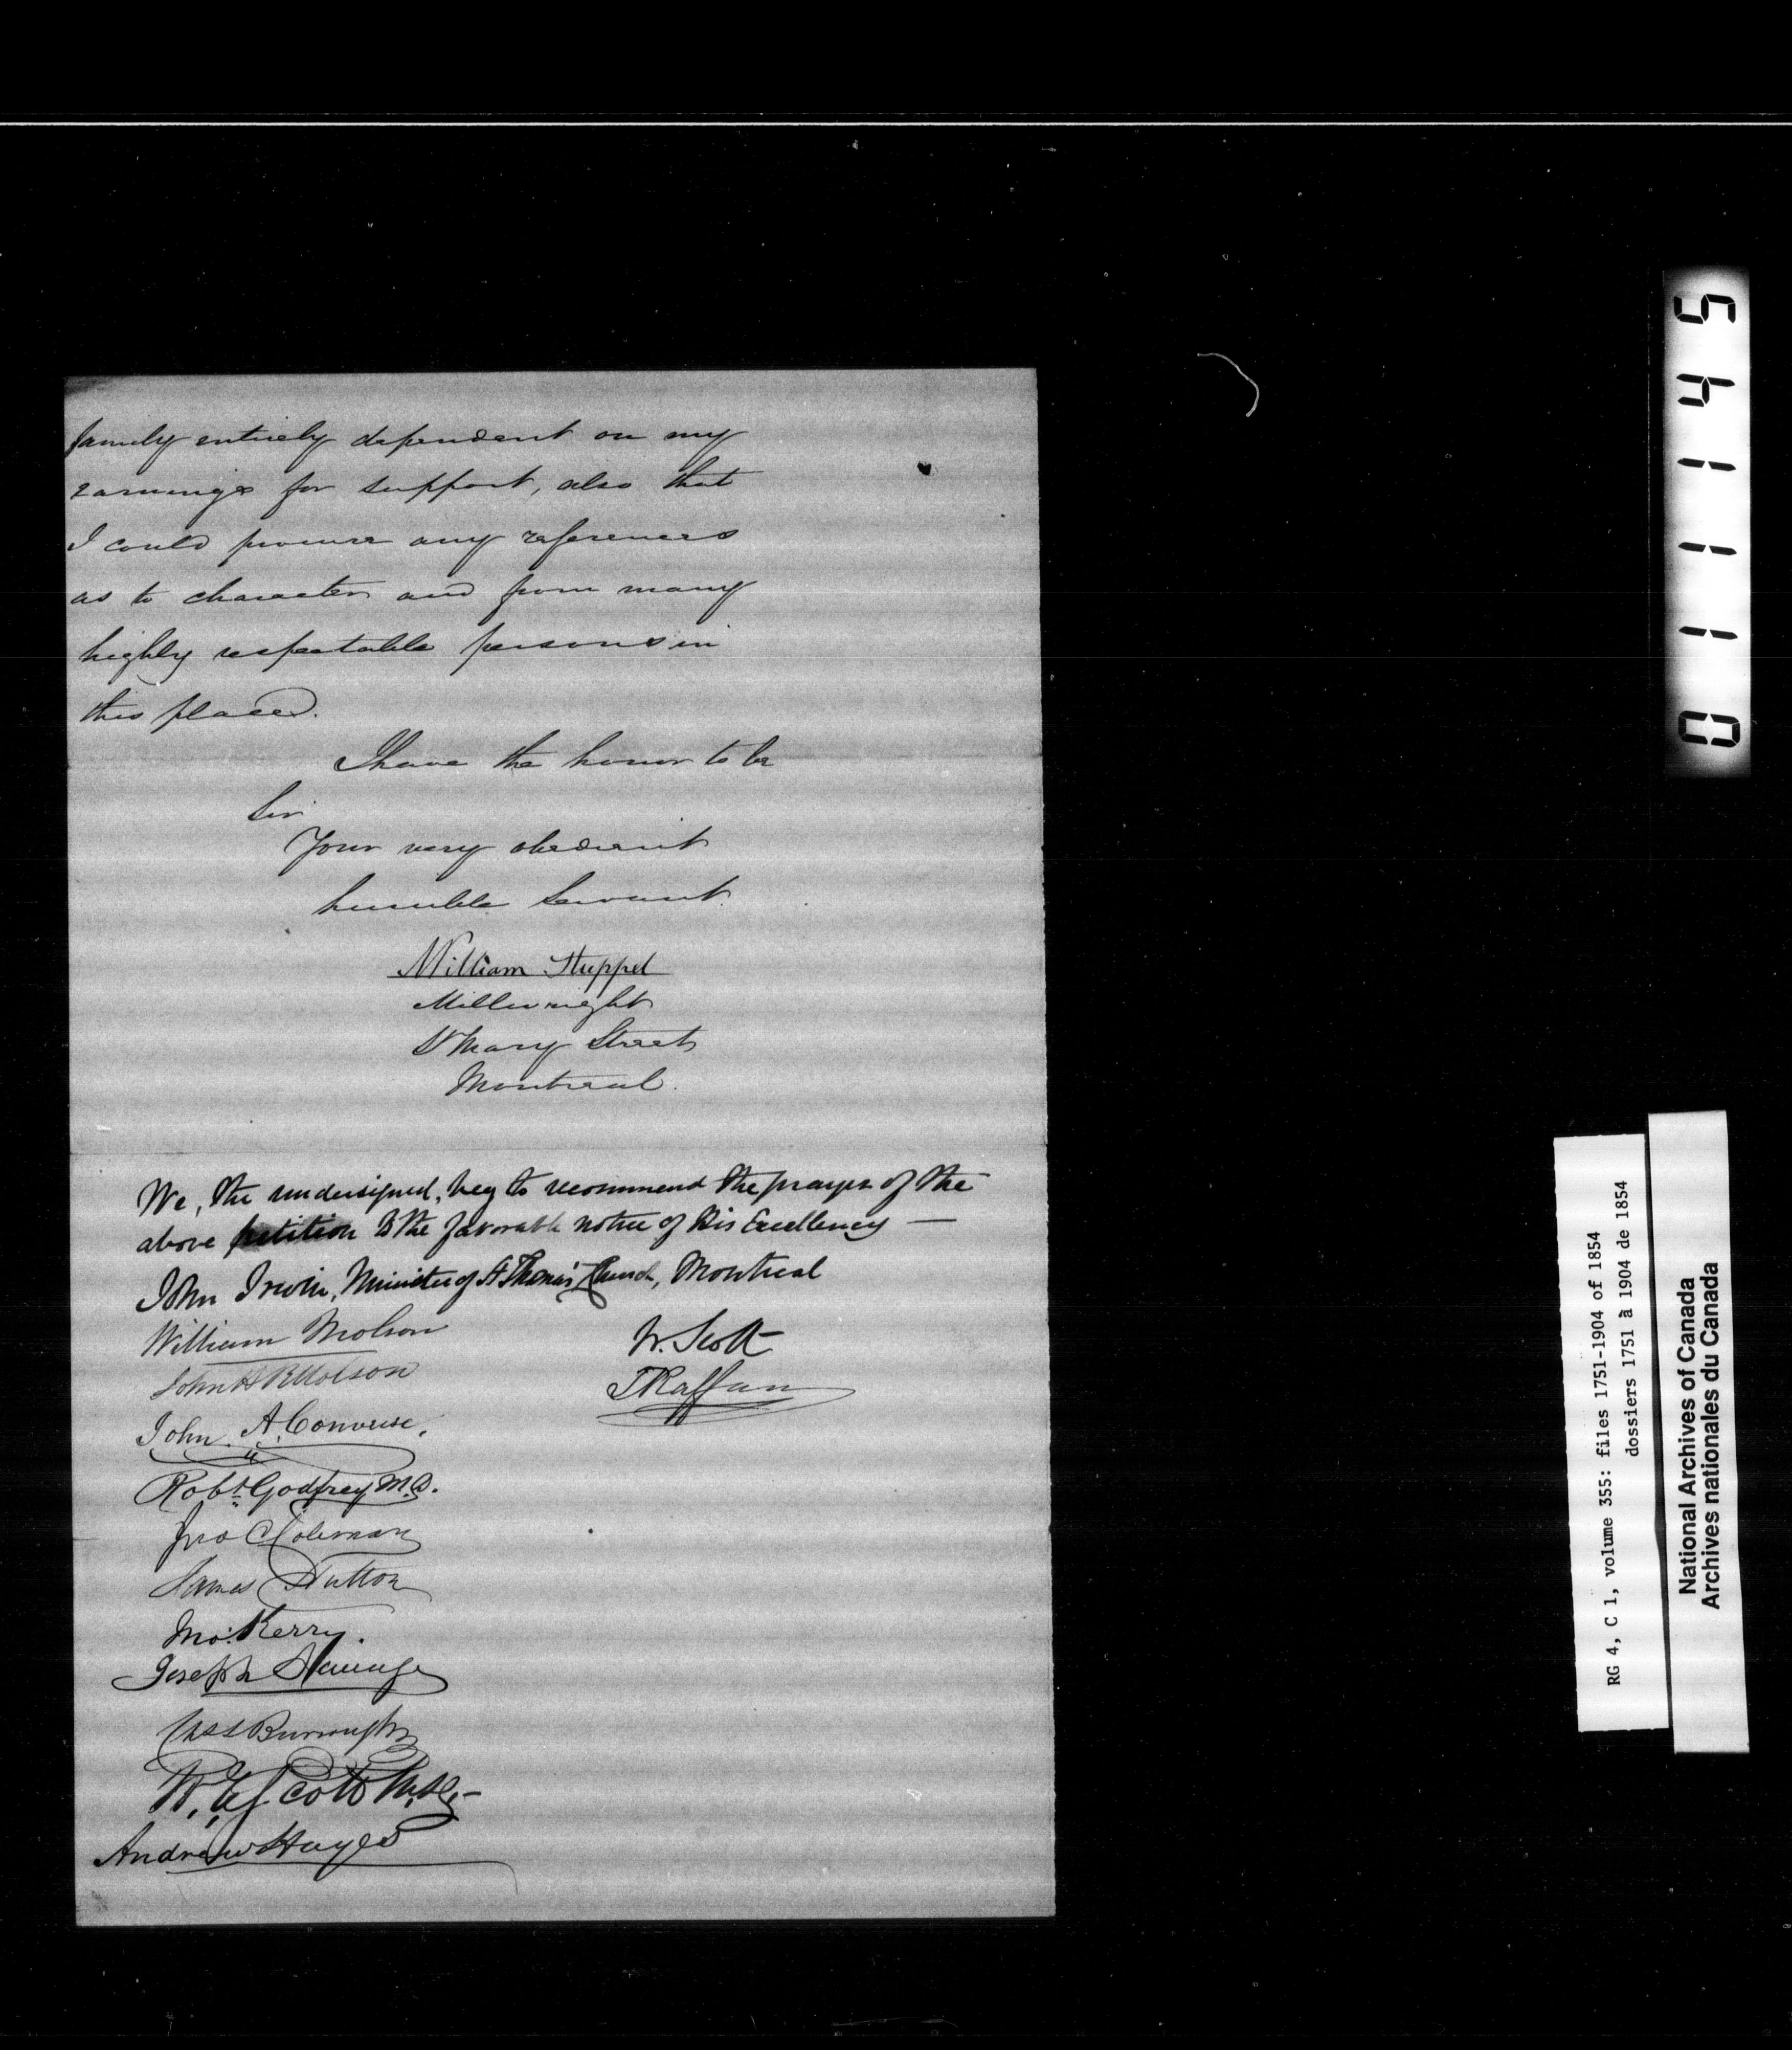 family entirely dependent on my
earnings for support, also that
I could procure any references
as to character and from many
highly respectable persons in
this place.
I have the honor to be
Sir
Your very obedient
humble Servant.
William Stuppel
Millwright
St Mary Street
Montreal.
We, the undersigned, beg to recommend the prayer of the
above petition to the favorable notice of His Excellency —
John Irwin, Minister of St Thomas' Church, Montreal
William Molson
John H R Molson
John A. Converse.
Robt Godfrey M.D.
Jno C Coleman
James Hutton
Jno. Kerry.
Joseph
Chs S Burroughs
W. E. Scott M.D.
Andrew Hayes
W. Scott
T Raffan
01145
RG 4, C 1, volume 355: files 1751-1904 of 1854
dossiers 1751 à 1904 de 1854
National Archives of Canada
Archives nationales du Canada